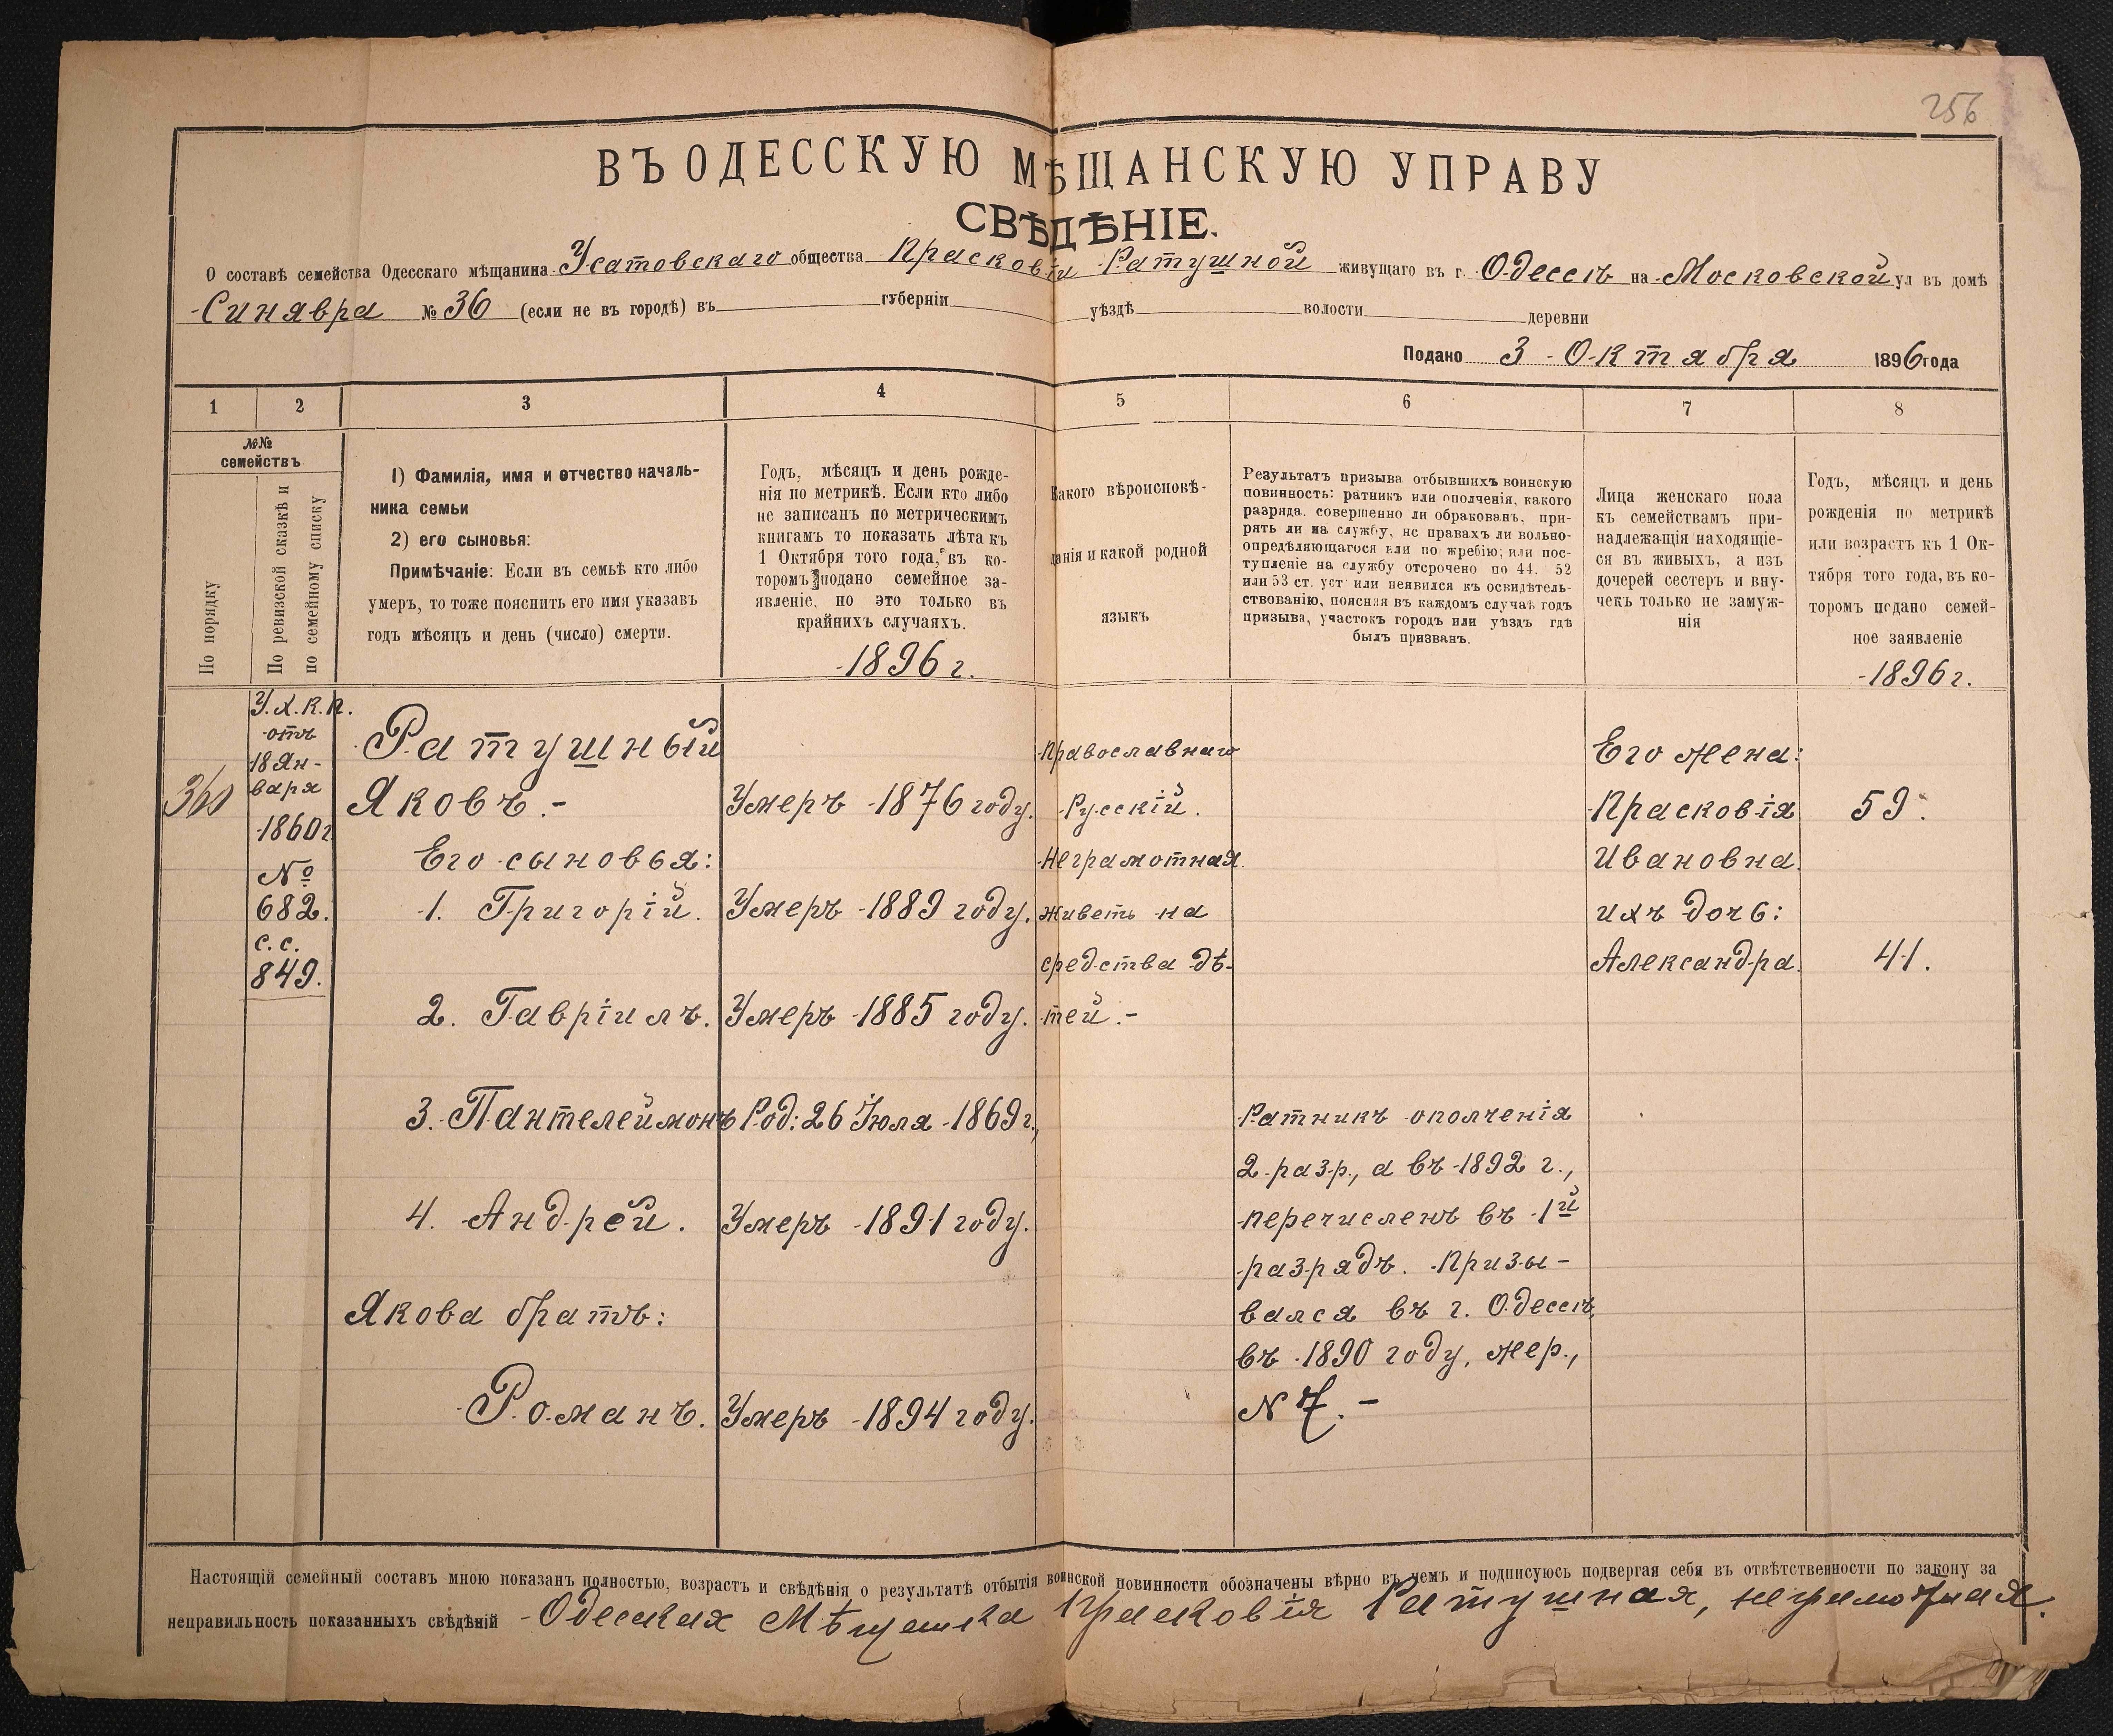 256
ВЪ ОДЕССКУЮ МѢЩАНСКУЮ УПРАВУ
СВѢДѢНІЕ.
О составѣ семейства Одесскаго мѣщанина Усатовскаго общества Прасковіи Ратушной живущаго въ г. Одессѣ на Московской ул въ домѣ
Синявра № 36 (если не въ городѣ) въ губерніи уѣздѣ волости деревни
Подано 3 Октября 1896 года
1 2 3 4 5 6 7 8
№№
семействъ
По порядку
По ревизской сказкѣ и
по семейному списку
1) Фамилія, имя и отчество началь-
ника семьи
2) его сыновья:
Примѣчаніе: Если въ семьѣ кто либо
умеръ, то тоже пояснить его имя указавъ
годъ мѣсяцъ и день (число) смерти.
Годъ, мѣсяцъ и день рожде-
нія по метрикѣ. Если кто либо
не записанъ по метрическимъ
книгамъ то показать лѣта къ
1 Октября того года, въ ко-
торомъ подано семейное за-
явленіе, но это только въ
крайнихъ случаяхъ.
1896 г.
Какого вѣроисповѣ-
данія и какой родной
языкъ
Результатъ призыва отбывшихъ воинскую
повинность: ратникъ или ополченія, какого
разряда. совершенно ли обракованъ, при-
рять ли на службу, нс правахъ ли вольно-
опредѣляющагося или по жребію; или пос-
тупленіе на службу отсрочено по 44. 52
или 53 ст. уст или неявился къ освидѣтель-
ствованію, поясняя въ каждомъ случаѣ годъ
призыва, участокъ городъ или уѣздъ гдѣ
былъ призванъ.
Лица женскаго пола
къ семействамъ при-
надлежащія находящіе-
ся въ живыхъ, а изъ
дочерей сестеръ и вну-
чекъ только не замуж-
нія
Годъ, мѣсяцъ и день
рожденія по метрикѣ
или возрастъ къ 1 Ок-
тября того года, въ ко-
торомъ подано семей-
ное заявленіе
1896 г.
360
У.Х.К.П.
отъ
18 Ян-
варя
1860 г
№
682.
с.с.
849.
Ратушный
Яковъ.-
Его сыновья:
1. Григорій.
2. Гавріилъ.
3. Пантелеймонъ
4. Андрей.
Якова братъ:
Романъ.
Умеръ 1876 году.
Умеръ 1889 году.
Умеръ 1885 году.
Род: 26 Іюля 1869 г.,
Умеръ 1891 году.
Умеръ 1894 году.
Православнаго
Русскій.
Неграмотная.
живеть на
средства дѣ-
тей.-
Ратникъ ополченія
2 разр., а въ 1892 г.,
перечисленъ въ 1й
разрядъ. Призы-
вался въ г. Одессѣ,
въ 1890 году, жер.,
N 7.-
Его жена:
Прасковія
Ивановна.
ихъ дочь:
Александра.
59.
41.
Настоящій семейный составъ мною показанъ полностью, возрастъ и свѣдѣнія о результатѣ отбытія воинской повинности обозначены вѣрно въ чемъ и подписуюсь подвергая себя въ отвѣтственности по закону за
неправильность показанныхъ свѣдѣній Одесская Мѣщанка Прасковія Ратушная, неграмотная.